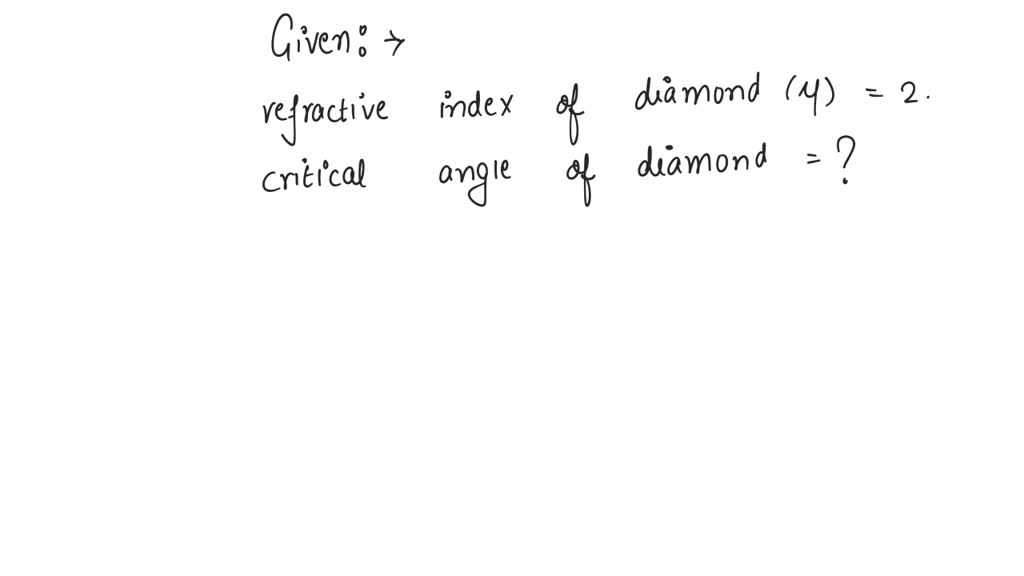 Given: →
refractive index of diamond (μ) = 2.
critical angle of diamond = ?